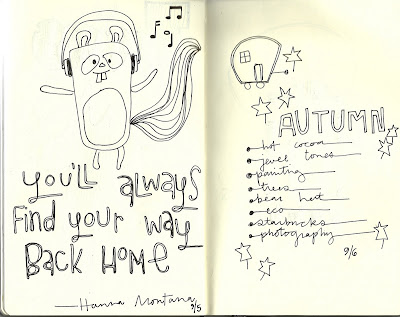 you'll always
find your way
Back Home
—Hanna Montana 9/5
AUTUMN
hot cocoa
jewel tones
painting
trees
bear hat
eco
starbucks
photography
9/6